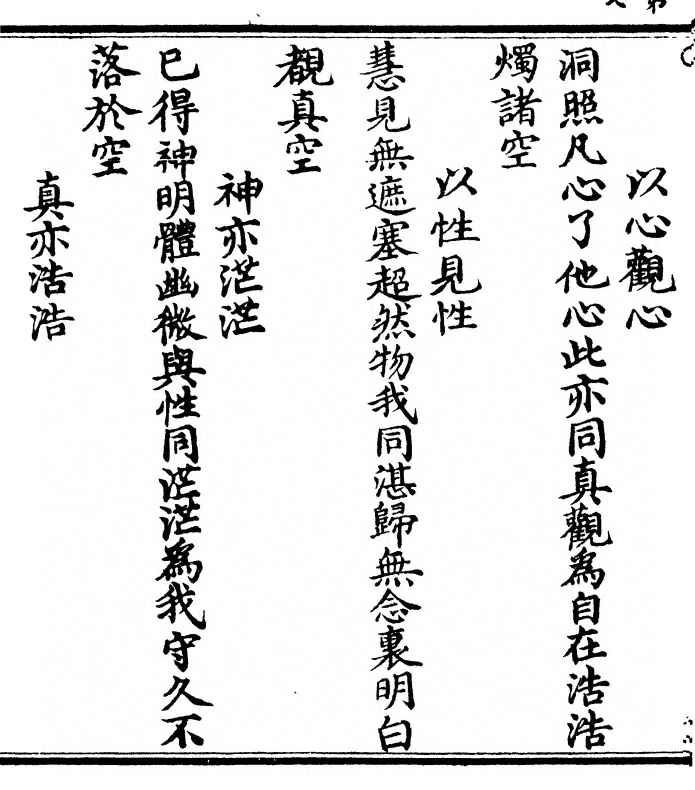 以心觀心
洞照凡心了他心此亦同真觀為自在浩浩
燭諸空
以性見性
慧見無遮塞超然物我同湛歸無念裏明白
覩真空
神亦茫茫
已得神明體幽微與性同茫茫為我守久不
落於空
真亦浩浩